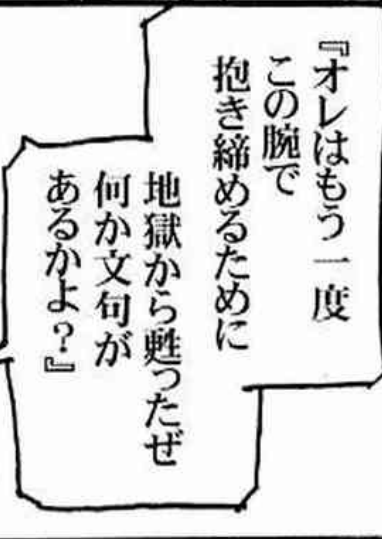 『オレはもう一度
この腕で
抱き締めるために
地獄から甦ったぜ
何か文句が
あるかよ？』